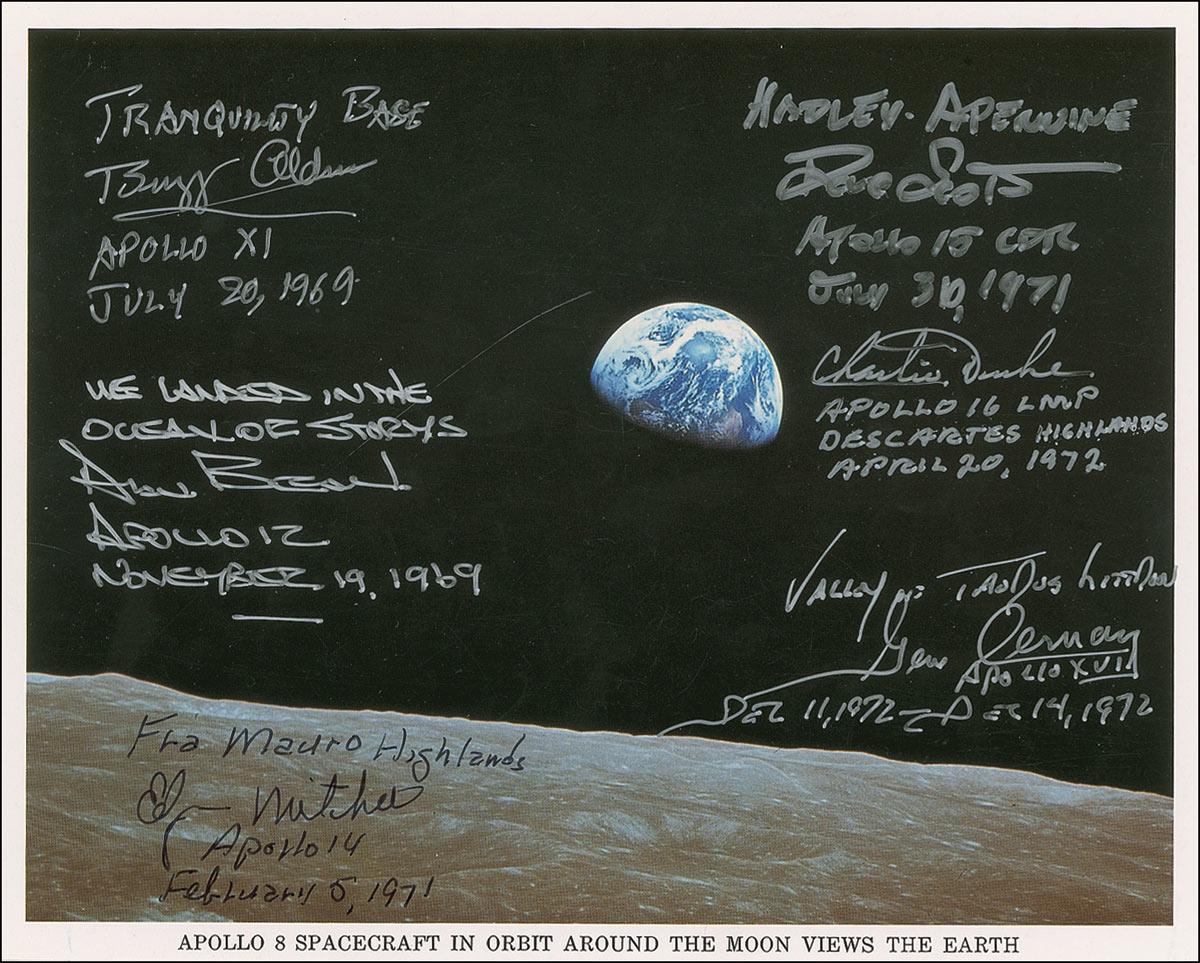 TRANQUILITY BASE
Buzz Aldrin
APOLLO XI
JULY 20, 1969
WE LANDED IN THE
OCEAN OF STORMS
Alan Bean
APOLLO 12
NOVEMBER 19, 1969
Fra Mauro Highlands
Edgar Mitchell
Apollo 14
February 5, 1971
HADLEY-APENNINE
Dave Scott
Apollo 15 CDR
July 30, 1971
Charlie Duke
APOLLO 16 LMP
DESCARTES HIGHLANDS
APRIL 20, 1972
VALLEY OF TAURUS LITTROW
Gene Cernan
APOLLO XVII
DEC 11, 1972 – DEC 14, 1972
APOLLO 8 SPACECRAFT IN ORBIT AROUND THE MOON VIEWS THE EARTH